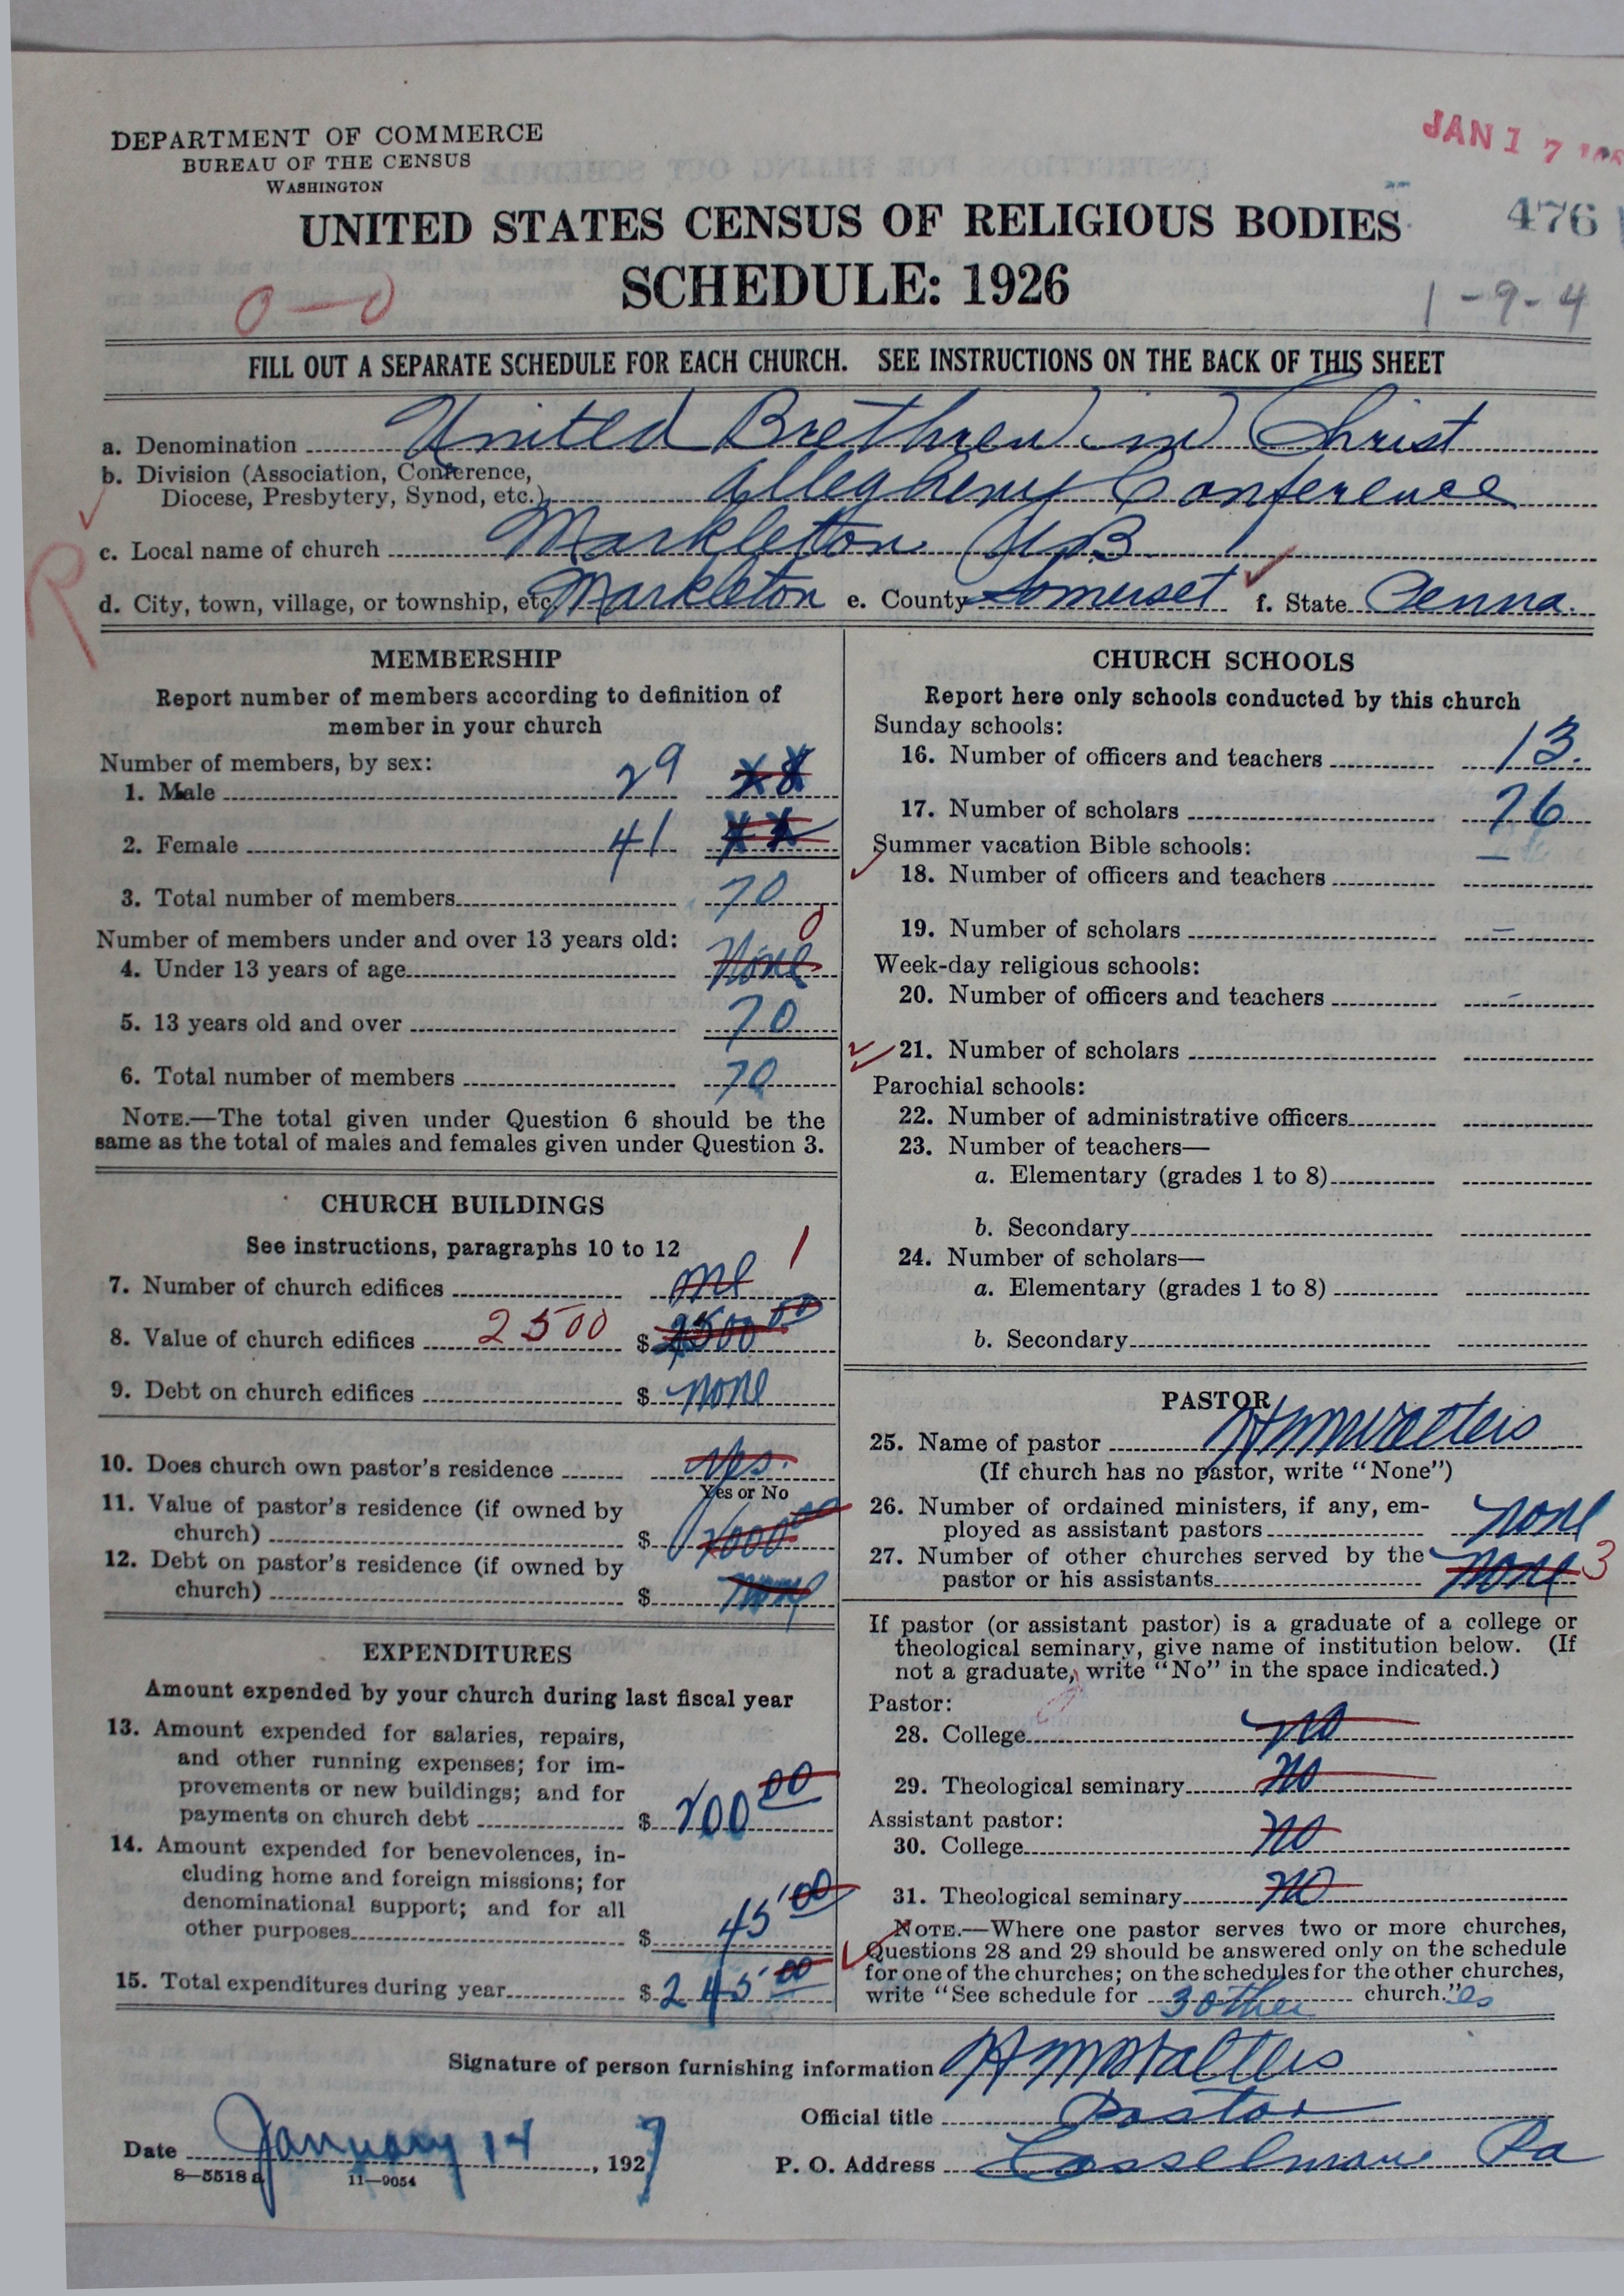 DEPARTMENT OF COMMERCE
BUREAU OF THE CENSUS
WASHINGTON
JAN 17
476
UNITED STATES CENSUS OF RELIGIOUS BODIES
SCHEDULE: 1926
0-0
1-9-4
FILL OUT A SEPARATE SCHEDULE FOR EACH CHURCH. SEE INSTRUCTIONS ON THE BACK OF THIS SHEET
a. Denomination United Brethren in Christ
b. Division (Association, Conference,
Diocese, Presbytery, Synod, etc.) Allegheny Conference
c. Local name of church Markleton U B
R
d. City, town, village, or township, etc. Markleton e. County Somerset f. State Penna.
MEMBERSHIP
Report number of members according to definition of
member in your church
Number of members, by sex:
1. Male 29
2. Female 41
3. Total number of members 70
Number of members under and over 13 years old:
0
4. Under 13 years of age None
5. 13 years old and over 70
6. Total number of members 70
NOTE.—The total given under Question 6 should be the
same as the total of males and females given under Question 3.
CHURCH BUILDINGS
See instructions, paragraphs 10 to 12
7. Number of church edifices one 1
8. Value of church edifices 2500 $ 2500 00
9. Debt on church edifices $ none
10. Does church own pastor's residence yes.
Yes or No
11. Value of pastor's residence (if owned by
church) $ 1000 00
12. Debt on pastor's residence (if owned by
church) $ none
EXPENDITURES
Amount expended by your church during last fiscal year
13. Amount expended for salaries, repairs,
and other running expenses; for im-
provements or new buildings; and for
payments on church debt $ 200 00
14. Amount expended for benevolences, in-
cluding home and foreign missions; for
denominational support; and for all
other purposes $ 45 00
15. Total expenditures during year $ 245 00
CHURCH SCHOOLS
Report here only schools conducted by this church
Sunday schools:
16. Number of officers and teachers 13.
17. Number of scholars 76
Summer vacation Bible schools:
18. Number of officers and teachers —
19. Number of scholars —
Week-day religious schools:
20. Number of officers and teachers -
21. Number of scholars
Parochial schools:
22. Number of administrative officers
23. Number of teachers—
a. Elementary (grades 1 to 8)
b. Secondary
24. Number of scholars—
a. Elementary (grades 1 to 8)
b. Secondary
PASTOR
25. Name of pastor H M Walters
(If church has no pastor, write "None")
26. Number of ordained ministers, if any, em-
ployed as assistant pastors none
27. Number of other churches served by the
pastor or his assistants none 3
If pastor (or assistant pastor) is a graduate of a college or
theological seminary, give name of institution below. (If
not a graduate, write "No" in the space indicated.)
Pastor:
28. College no
29. Theological seminary no
Assistant pastor:
30. College no
31. Theological seminary no
NOTE.—Where one pastor serves two or more churches,
Questions 28 and 29 should be answered only on the schedule
for one of the churches; on the schedules for the other churches,
write "See schedule for 3 other church." es
Signature of person furnishing information H M Walters
Official title Pastor
Date January 14, 1927
P. O. Address Casselman Pa
8—5518 a 11—9054